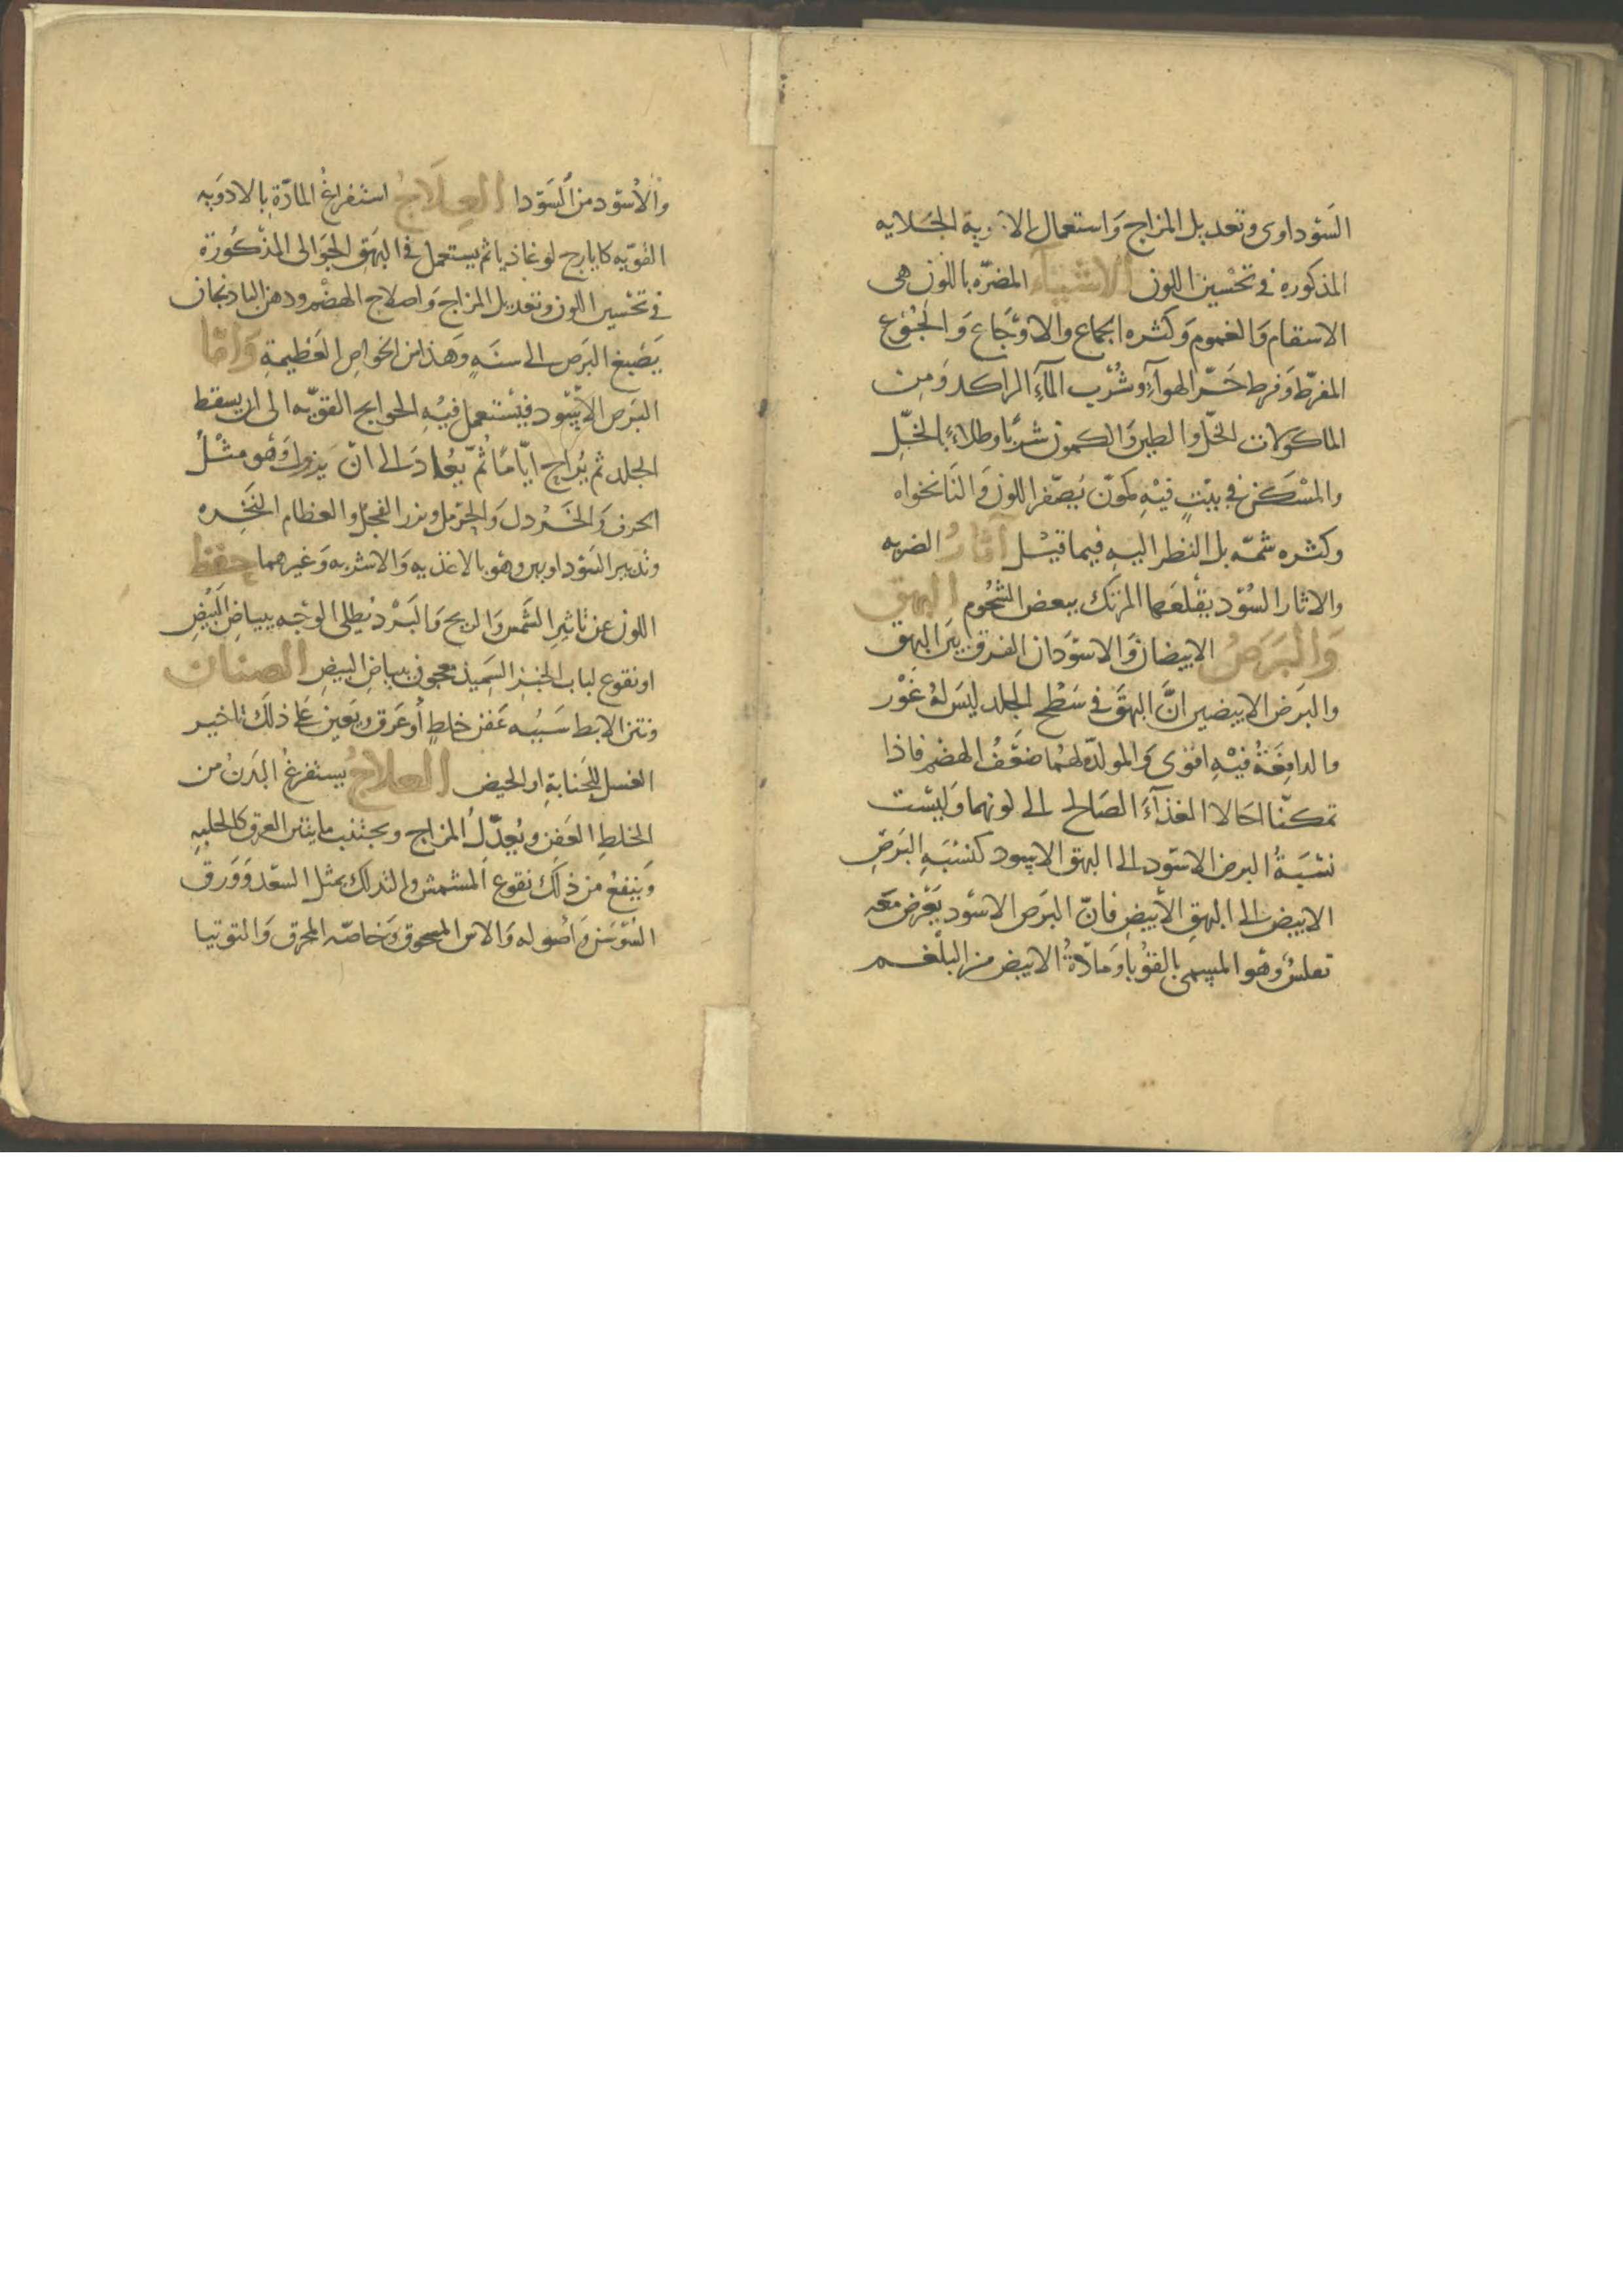 السوداوى وتعديل المزاج واستعمال الادوية الجلايه
المذكوره فى تحسين اللون الاشياء المضرّه باللون هى
الاسقام والغموم وكثره الجماع والاوجاع والجوع
المفرط وفرط حرّ الهوآء وشرب المآء الراكد ومن
الماكولات الخلّ والطين والكمون شربا وطلاء بالخلّ
والمسكن فى بيت فيه كمون يصفر اللون والنانخواه
وكثره شمّه بل النظر اليه فيما قيل آثار الضربه
والاثار السود يقلعها المرتك ببعض الشحوم البهق
والبرص الابيضان والاسودان الفرق بين البهق
والبرص الابيضين انّ البهق فى سطح الجلد ليس له غور
والدافعة فيه اقوى والمولد لهما ضعف الهضم فاذا
تمكنّا احالا الغذآء الصالح الى لونهما وليست
نسبة البرص الاسود الى البهق الاسود كنسبه البرص
الابيض الى البهق الأبيض فانّ البرص الاسود يعرض معه
تفلس وهو المسمى بالقوبا ومادّة الابيض من البلغم
والأسود من السودا العلاج استفراغ المادّة بالادويه
القويّه كايارج لوغاذيا ثم يستعمل فى البهق الجوالى المذكورة
فى تحسين اللون وتعديل المزاج واصلاح الهضم ودهن الباذنجان
يصبغ البرص الى سنه وهذا من الخواص العظيمة وامّا
البرص الاسود فيستعمل فيه الحوايج القويّه الى ان يسقط
الجلد ثم يُراح ايّاما ثمّ يعاد الى ان يزول وهو مثل
الحرف والخردل والحرمل وبزر الفجل والعظام النخره
وتدبير السوداويين وهو بالاغذيه والاشربه وغيرهما حفظ
اللون عن تاثير الشمس والريح والبرد يُطلى الوجه ببياض البيض
او نقوع لباب الخبز السميذ معجون ببياض البيض الصنان
ونتن الابط سببه عفن خلط أو عرق ويعين على ذلك تاخير
الغسل للجنابة او الحيض العلاج يستفرغ البدن من
الخلط العفن ويُعدّل المزاج ويجتنب ما ينتن العرق كالحلبه
وينفع من ذلك نقوع المشمش والتدلك بمثل السعد وورق
السوسن وأصوله والاس المسحوق وخاصّه المحرق والتوتيا